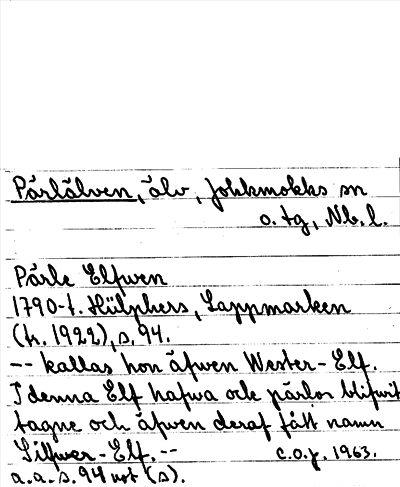 Pärlälven, älv, Jokkmokks sn
o. tg, Nb. l.
Pärle Elfwen
1790-t. Hülphers, Lappmarken
(h. 1922), s. 94.
-- kallas hon äfwen Wester-Elf.
I denna Elf hafwa ock pärlor blifwit
tagne och äfwen deraf fått namn
Silfwer-Elf. -- c.o.j. 1963.
a.a.s. 94 not (s).